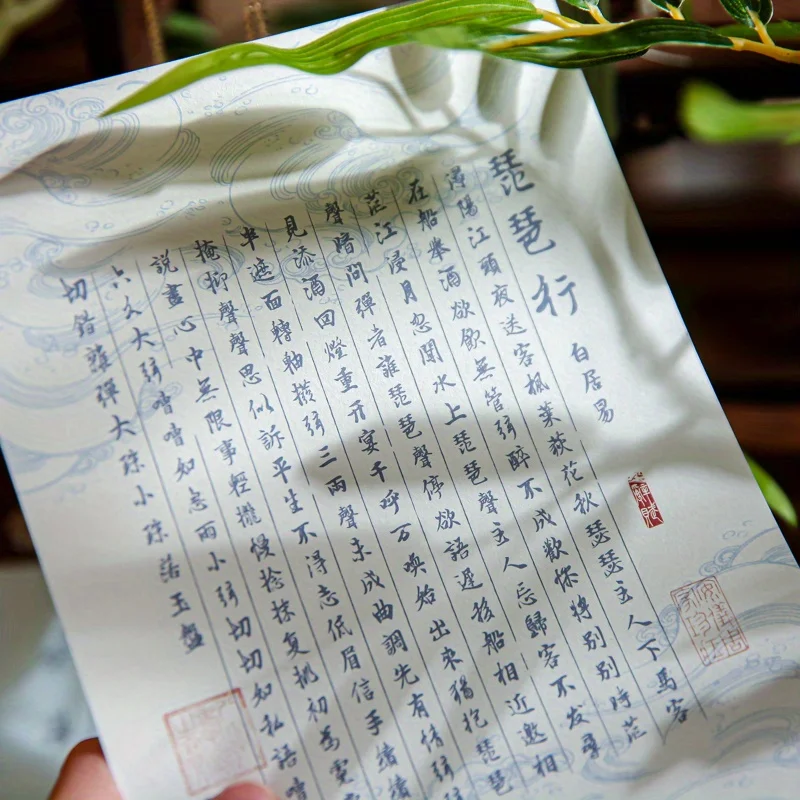 琵琶行
白居易
潯陽江頭夜送客楓葉荻花秋瑟瑟主人下馬客
在船舉酒欲飲無管弦醉不成歡慘將別別時茫
茫江浸月忽聞水上琵琶聲主人忘歸客不发尋
聲暗問彈者誰琵琶聲停欲語遲移船相近邀相
見添酒回燈重开宴千呼万喚始出來猶抱琵琶
半遮面轉軸撥弦三兩聲未成曲調先有情弦弦
掩抑聲聲思似訴平生不得志低眉信手續續
說盡心中無限事輕攏慢捻抹复挑初為霓
六幺大弦嘈嘈如急雨小弦切切如私語嘈
切錯雜彈大珠小珠落玉盤